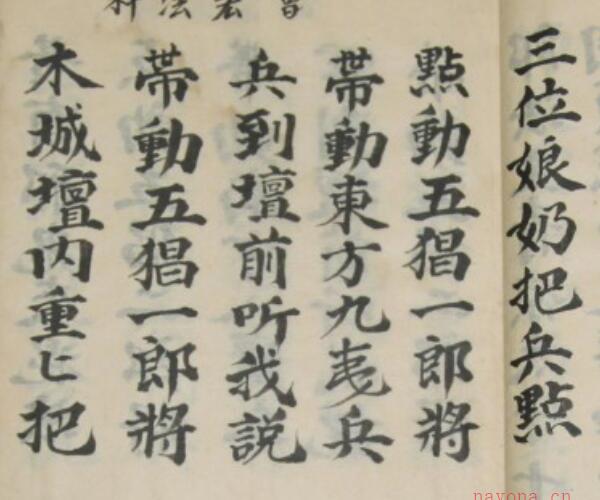 三位娘奶把兵點
點動五猖一郎將
帶動東方九夷兵
兵到壇前听我說
帶動五猖一郎將
木城壇内重匕把
nayona.cn